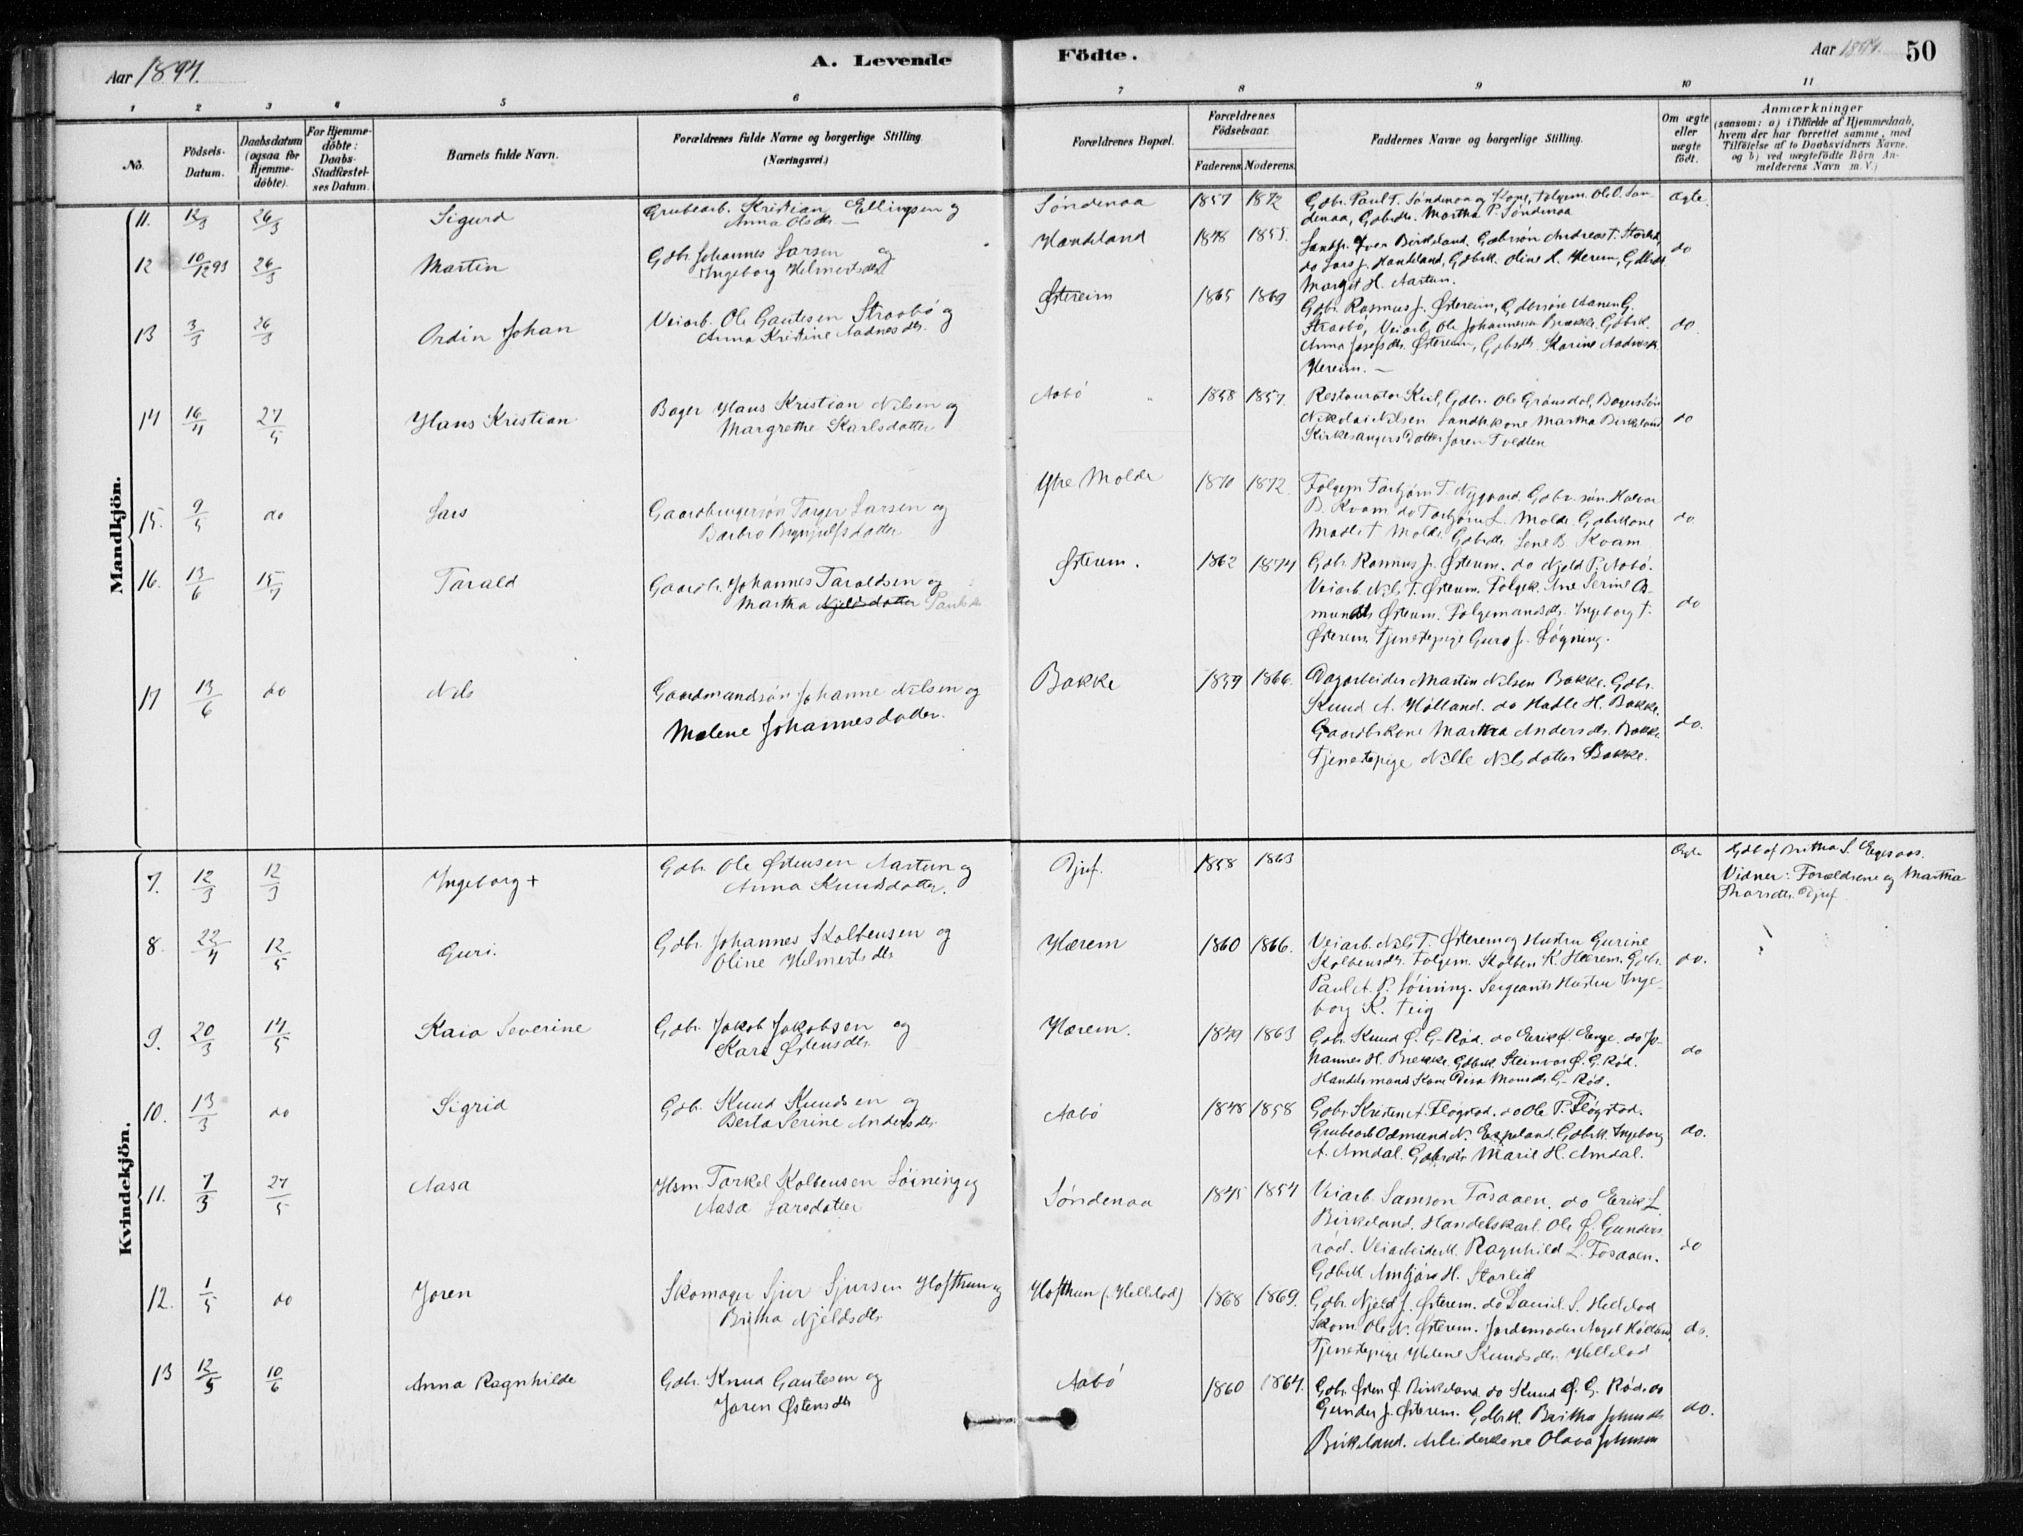 Aar 1894.
A. Levende
Födte.
Aar 1894.
50
1 2 3 4 5 6 7 8 9 10 11
No.
Födsels-Datum.
Daabsdatum (ogsaa for Hjemme-döbte).
For Hjemme-döbte: Daabs-Stadfæstel-ses Datum.
Barnets fulde Navn.
Forældrenes fulde Navne og borgerlige Stilling. (Næringsvei.)
Forældrenes Bopæl.
Forældrenes Födselsaar.
Faderens. Moderens.
Faddernes Navne og borgerlige Stilling.
Om ægte eller uægte født.
Anmærkninger
(saasom: a) i Tilfælde af Hjemmedaab,
hvem der har forrettet samme, med
Tilföielse af to Daabsvidners Navne.
og b) ved uægtefödte Börn An-
melderens Navn m. V.)
Mandkjön.
11. 12/3 26/3 Sigurd Grubearb. Kristian Ellingsen og
Anna Olsdtr. —
Söndenaa 1857 1872 Gdbr. Paul T. Søndenaa og Kone, Folgem. Ole O. Søn-
denaa, Gdbrdtr. Martha P. Søndenaa
Ægte.
12 10/12 93 26/3 Martin Gdbr. Johannes Larsen og
Ingeborg Helmertsdtr
Handeland 1848 1855. Landh. Iver Birkeland. Gdbrsøn Andreas T. Storlid,
do Lars J. Handeland, Gdbrk. Oline H. Herem, Gdbrdt
Margit H. Aartun.
do
13 3/3 26/3 Ordin Johan Veiarb. Ole Gautesen Straabø og
Anna Kristine Aadnesdtr.
Østereim 1865 1869 Gdbr. Rasmus J. Østereim, Gdbrsøn Aanen G.
Straabø, Veiarb. Ole Johannesen Brække. Gdbrk.
Anna Josefsdtr. Østereim, Gdbrdtr. Karine Aadnesd.
Hereim. —
do.
14 16/4 27/5 Hans Kristian Bager Hans Kristian Nilsen og
Margrethe Karlsdatter
Aabö 1858 1857. Restauratør Kiel, Gdbr. Ole Grönsdal, Bagersøn
Nikolai Nilsen Landhkone Martha Birkeland
Kirkesangers Datter Joren Tvedten
do
15. 9/5 do Lars Gaardbrugersön Torger Larsen og
Barbro Brynjulfsdatter
Ytre Molde 1870 1872. Folgem Torbjørn T. Nygaard. Gdbr.søn Halvor
B. Kvam do Torbjørn L. Molde. Gdbrkone
Madle T Molde Gdbrdtr. Lene B. Kvam
do
16. 13/6 15/7 Tarald Gaardbr. Johannes Taraldsen og
Martha Njeldsdatter Paulsdr
Østerem. 1862 1874 Gdbr. Rasmus J. Østerem. do Njeld P. Aabö.
Veiarb. Nils T. Østerem. Folgek. Ane Serine As-
mundsdtr Østerem. Folgemandsdtr. Ingeborg T.
Østerem. Tjenestepige Guro J. Løyning.
do
17 13/6 do Nils Gaardmandssön Johanne Nilsen og
Malene Johannesdatter.
Bakke 1859 1866. Dagarbeider Martin Nilsen Bakke. Gdbr.
Knud A. Hølland. do Hadle H. Bakke.
Gaardbrkone Martha Andersdtr. Bakke
Tjenestepige Nille Nilsdatter Bakke.
do.
Kvindekjön.
7. 12/3 12/3 Ingeborg + Gdbr. Ole Østensen Aartun og
Anna Knudsdatter.
Djuf. 1858 1863 Ægte
Gdb af Britha S. Egesaas.
Vidner: Forældrene og Martha
Thorsdtr. Djuf
8. 22/4 12/5 Guri. Gdbr. Johannes Kolbensen og
Oline Helmertsdtr
Hærem 1860 1866. Veiarb. Nils T. Østerem og Hustru Gurine
Kolbensdtr. Folgem. Kolben K. Hærem. Gdbr.
Paul A. P. Löining. Sergeants Hustru Inge-
borg K. Teig
do.
9. 20/3 14/5 Kaia Severine Gdbr. Jakob Jakobsen og
Kari Østensdtr
Hærem. 1849 1863 Gdbr. Knud Ø. G-Rød. do Erik Ø. Enge. do Jo-
hannes H. Brekke. Gdbrk. Steinvor Ø. G. Rød.
Handelsmands Kone Disa Monsdtr. G-Rød.
do
10. 13/3 do Sigrid Gdb. Knud Knudsen og
Berta Serine Andersdtr.
Aabö 1848 1858 Gdbr. Kristen A. Fløgstad. do Ole P. Fløgstad.
Grubearb Odmund N. Espeland. Gdbrk. Ingeborg
A. Amdal. Gdbrdtr Marie H. Amdal.
do.
11. 7/3 27/5 Aasa Hsm. Torkel Kolbensen Löining og
Aasa Larsdatter
Söndenaa 1845 1854 Veiarb. Samson Fosaaen. do Erik L.
Birkeland. Handelskarl Ole Ø. Gunders
rød. Veiarbeiderk. Ragnhild L. Fosaaen.
Gdbrk Anbjör H. Storlid
do
12. 1/5 do Joren Skomager Sjur Sjursen Hofthun og
Britha Njeldsdtr
Hofthun (Hellelad) 1868 1869. Gdbr. Njeld J. Østerem. do Daniel S. Hellelad
Skom. Ole N. Østerem. Jordemoder Aagot Hølland
Tjenestepige Helene Knudsdtr. Hellelad
do.
13 12/5 10/6 Anna Ragnhilde Gdbr. Knud Gautesen og
Joren Østensdtr
Aabö 1860 1864. Gdbr. Østen Ø. Birkeland. do Knud Ø. G. Rød. do
Gunder J. Østerem. Gdbrk. Britha Johnsdtr.
Birkeland. Arbeiderkone Olava Johnsen
do.